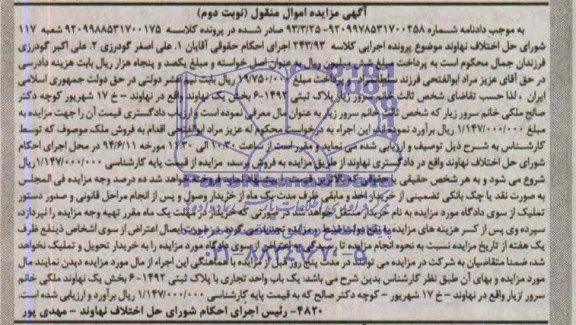 آگهی مزایده اموال منقول (نوبت دوم)
به موجب دادنامه شماره ۹۲۰۹۹۷۸۵۳۱۷۰۰۲۵۸-۹۳/۳/۲۵ صادر شده در پرونده کلاسه ۹۲۰۹۹۸۸۵۳۱۷۰۰۱۷۵ شعبه ۱۱۷
شورای حل اختلاف نهاوند موضوع پرونده اجرایی کلاسه ۲۴۳/۹۳ اجرای احکام حقوقی آقایان ۱. علی اصغر گودرزی ۲. علی اکبر گودرزی
فرزندان جمال محکوم است به پرداخت مبلغ میلیون ریال به عنوان اصل خواسته و مبلغ یکصد و پنجاه هزار ریال بابت هزینه دادرسی
در حق آقای عزیز مراد ابوالفتحی فرزند سلطانعلی و پرداخت مبلغ ۱۹/۷۵۰/۰۰۰ ریال بابت نیم عشر دولتی در حق دولت جمهوری اسلامی
ایران ، لذا حسب تقاضای شخص ثالث خانم سرور زیار پلاک ثبتی ۶-۱۴۹۲ بخش یک نهاوند واقع در نهاوند - خ ۱۷ شهریور کوچه دکتر
صالح ملکی خانم سرور زیار که شخص ثالث خانم سرور زیار به عنوان مال معرفی نموده است و ارزیاب دادگستری قیمت آن را جهت مزایده به
مبلغ ۱/۱۴۷/۰۰۰/۰۰۰ ریال برآورد نموده لذا این اجراء به درخواست محکوم له عزیز مراد ابوالفتحی اقدام به فروش ملک موصوف که توسط
کارشناس به شرح ذیل توصیف و ارزیابی شده می نماید و مقرر است از ساعت ۱۰:۳۰ الی ۱۱:۳۰ مورخه ۹۴/۶/۱۱ در محل اجرای احکام
شورای حل اختلاف نهاوند واقع در دادگستری نهاوند از طریق مزایده به فروش برسد، مزایده از قیمت پایه کارشناسی ۱/۱۴۷/۰۰۰/۰۰۰ ریال
شروع می شود و به هر شخص حقیقی یا حقوقی که بالاترین قیمت را پیشنهاد نماید فروخته خواهد شد ده درصد وجه مزایده فی المجلس
به صورت نقد یا چک بانکی تضمینی از خریدار اخذ و مابقی ظرف مدت یک ماه از خریدار وصول و پس از انجام مراحل قانونی و صدور دستور
تملیک از سوی دادگاه مورد مزایده به نام خریدار منتقل خواهد شد در صورتی که خریدار در مهلت یک ماه مقرر تهیه وجه مزایده را نپردازد
سپرده وی پس از کسر هزینه های مزایده به نفع دولت ضبط و مزایده تجدید می گردد در صورت وصول اعتراض از سوی اشخاص ذینفع ظرف
یک هفته از تاریخ مزایده نسبت به نحوه انجام مزایده تا رسیدگی به اعتراض از سوی دادگاه مورد مزایده را به خریدار تحویل و تملیک نخواهد
شد، ضمنا متقاضیان به شرکت در مزایده می توانند در مدت پنج روز قبل از روز مزایده با هماهنگی این اجراء از مال مورد مزایده دیدن نمایند مال
مورد مزایده و بهای آن طبق نظر کارشناس بدین شرح می باشد: یک باب واحد تجاری با پلاک ثبتی ۶-۱۴۹۲ بخش یک نهاوند ملکی خانم
سرور زیار واقع در نهاوند - خ ۱۷ شهریور - کوچه دکتر صالح که به قیمت پایه کارشناسی ۱/۱۴۷/۰۰۰/۰۰۰ ریال برآورد و ارزیابی شده است.
۴۸۲۰- رئیس اجرای احکام شورای حل اختلاف نهاوند - مهدی پور
ParsNamadData
۰۲۱-۸۸۳۴۹۶۷۰-۵